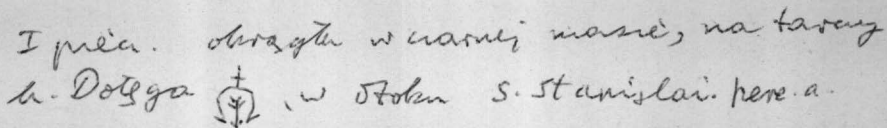 I pieu. okrągła w czarnej masie, na tarczy
h. Dołęga , w otoku S. Stanislai. here. a.